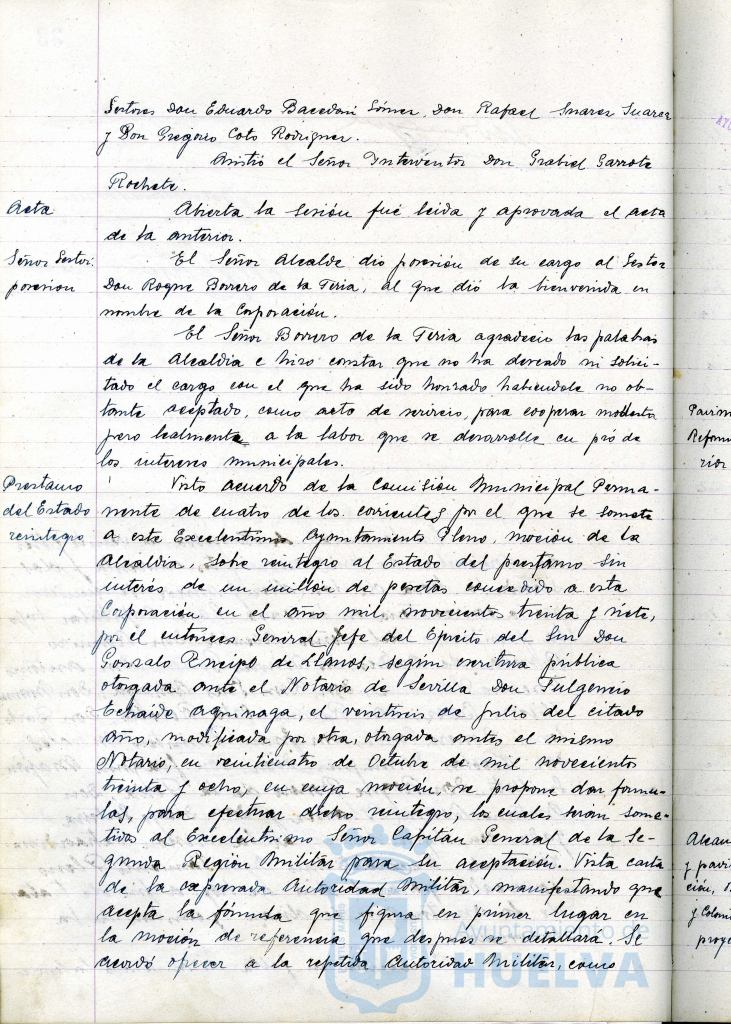 Sestores Don Eduardo Bacedoni Gómez, Don Rafael Suarez Suarez
y Don Gregorio Coto Rodriguez.
Asistió el Señor Interventor Don Grabiel Garrote
Rochete.
Acta
Abierta la Sesión fué leida y aprovada el acta
de la anterior.
Señor Gestor.
posesion
El Señor Alcalde dió posesión de su cargo al Gestor
Don Roque Borrero de la Feria, al que dió la bienvenida en
nombre de la Corporación.
El Señor Borrero de la Feria agradecio las palabras
de la Alcaldia e hizo constar que no ha deseado ni solici-
tado el cargo con el que ha sido honrado habiendole no obs-
tante aceptado, como acto de servicio, para cooperar modesta
pero lealmente a la labor que se desarrolle en pró de
los intereses municipales.
Prestamo
del Estado
reintegro
Visto acuerdo de la Comisión Municipal Perma-
nente de cuatro de los corrientes por el que se somete
a este Excelentisimo Ayuntamiento Pleno, moción de la
Alcaldia, sobre reintegro al Estado del prestamo sin
interés de un millón de pesetas concedido a esta
Corporación en el año mil novecientos treinta y siete,
por el entonces General Jefe del Ejercito del Sur Don
Gonzalo Queipo de Llanos, según escritura pública
otorgada ante el Notario de Sevilla Don Fulgencio
Echaide Aguinaga, el veintitreis de Julio del citado
año, modificada por otra, otorgada antes el mismo
Notario, en veinticuatro de Octubre de mil novecientos
treinta y ocho, en cuya moción, se propone dos formu-
las, para efectuar dicho reintegro, las cuales seran some-
tidas al Excelentisimo Señor Capitán General de la Se-
gunda Región Militar para su aceptación. Vista carta
de la expresada Autoridad Militar, manifestando que
acepta la fórmula que figura en primer lugar en
la moción de referencia que despues se detallará. Se
acordó ofrecer a la repetida Autoridad Militar, como
Ayuntamiento de
HUELVA
Pavim
Reform
rior
Alcan
y pavi
ción,
y Colon
proye